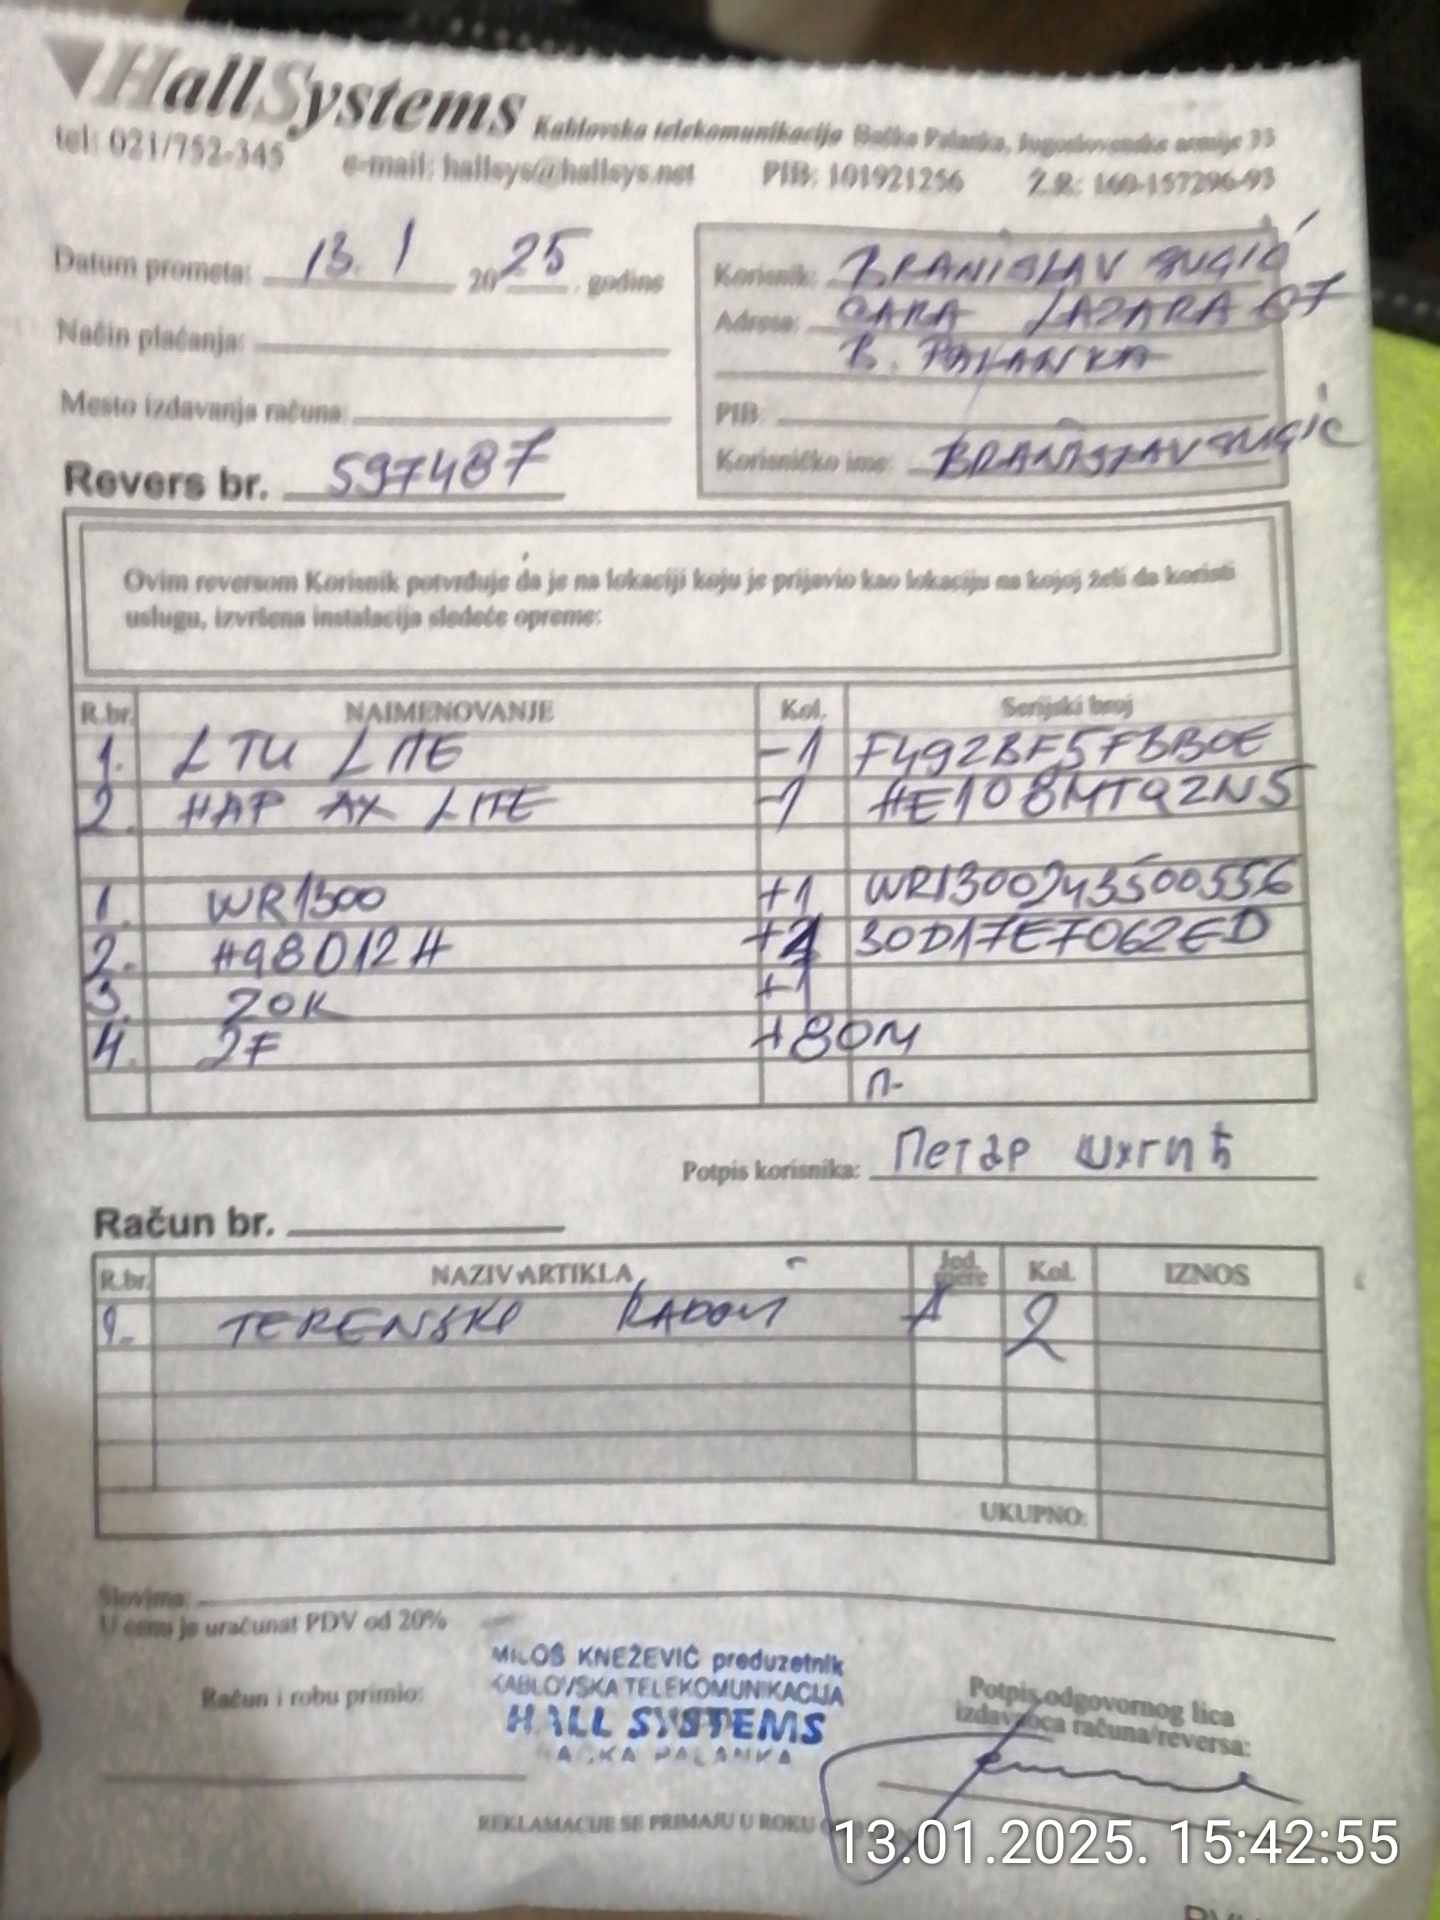 HallSystems Kablovska telekomunikacija Bačka Palanka, Jugoslovenske armije 33
tel: 021/752-345 e-mail: hallsys@hallsys.net PIB: 101921256 Ž.R: 160-157296-93
Datum prometa: 13. 1 2025. godine
Korisnik: BRANISLAV
Adresa: CARA LAZARA 67
B. PALANKA
Način plaćanja:
Mesto izdavanja računa:
PIB:
Korisničko ime: BRANISLAV
Revers br. 597487
Ovim reversom Korisnik potvrđuje da je na lokaciji koju je prijavio kao lokaciju na kojoj želi da koristi
uslugu, izvršena instalacija sledeće opreme:
R.br. NAIMENOVANJE Kol. Serijski broj
1. LTU LITE -1 F492BF5FBB0E
2. HAP AX LITE -1 HE108MTQ2N5
1. WR1300 +1 WR1300243500556
2. +1 30D17E7062ED
3. ZOK +1
4. 2F +80M
П-
Potpis korisnika: Петар
Račun br.
R.br. NAZIV ARTIKLA Jed. mere Kol. IZNOS
1. TERENSKI RADOVI 2
UKUPNO:
Slovima:
U cenu je uračunat PDV od 20%
MILOŠ KNEŽEVIĆ preduzetnik
KABLOVSKA TELEKOMUNIKACIJA
HALL SYSTEMS
BAČKA PALANKA
Račun i robu primio:
Potpis odgovornog lica
izdavaoca računa/reversa:
REKLAMACIJE SE PRIMAJU U ROKU
13.01.2025. 15:42:55